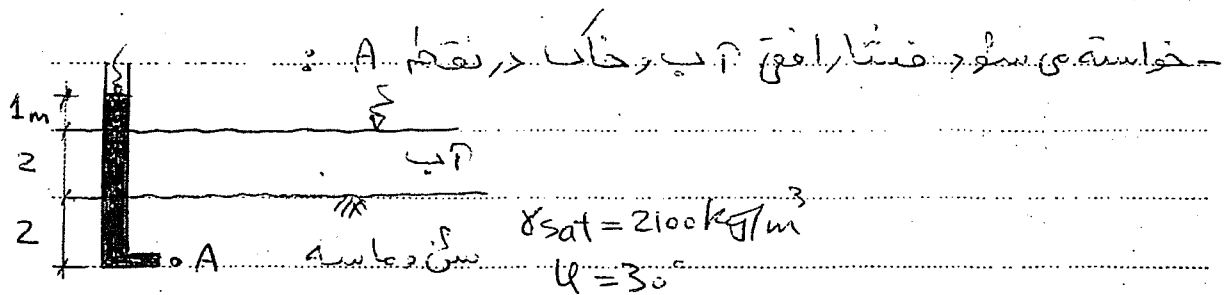 خواسته می شود فشار افقی آب و خاک در نقطه A :
1m
آب
2
2
A
شن و ماسه
γsat = 2100 kg/m³
φ = 30°